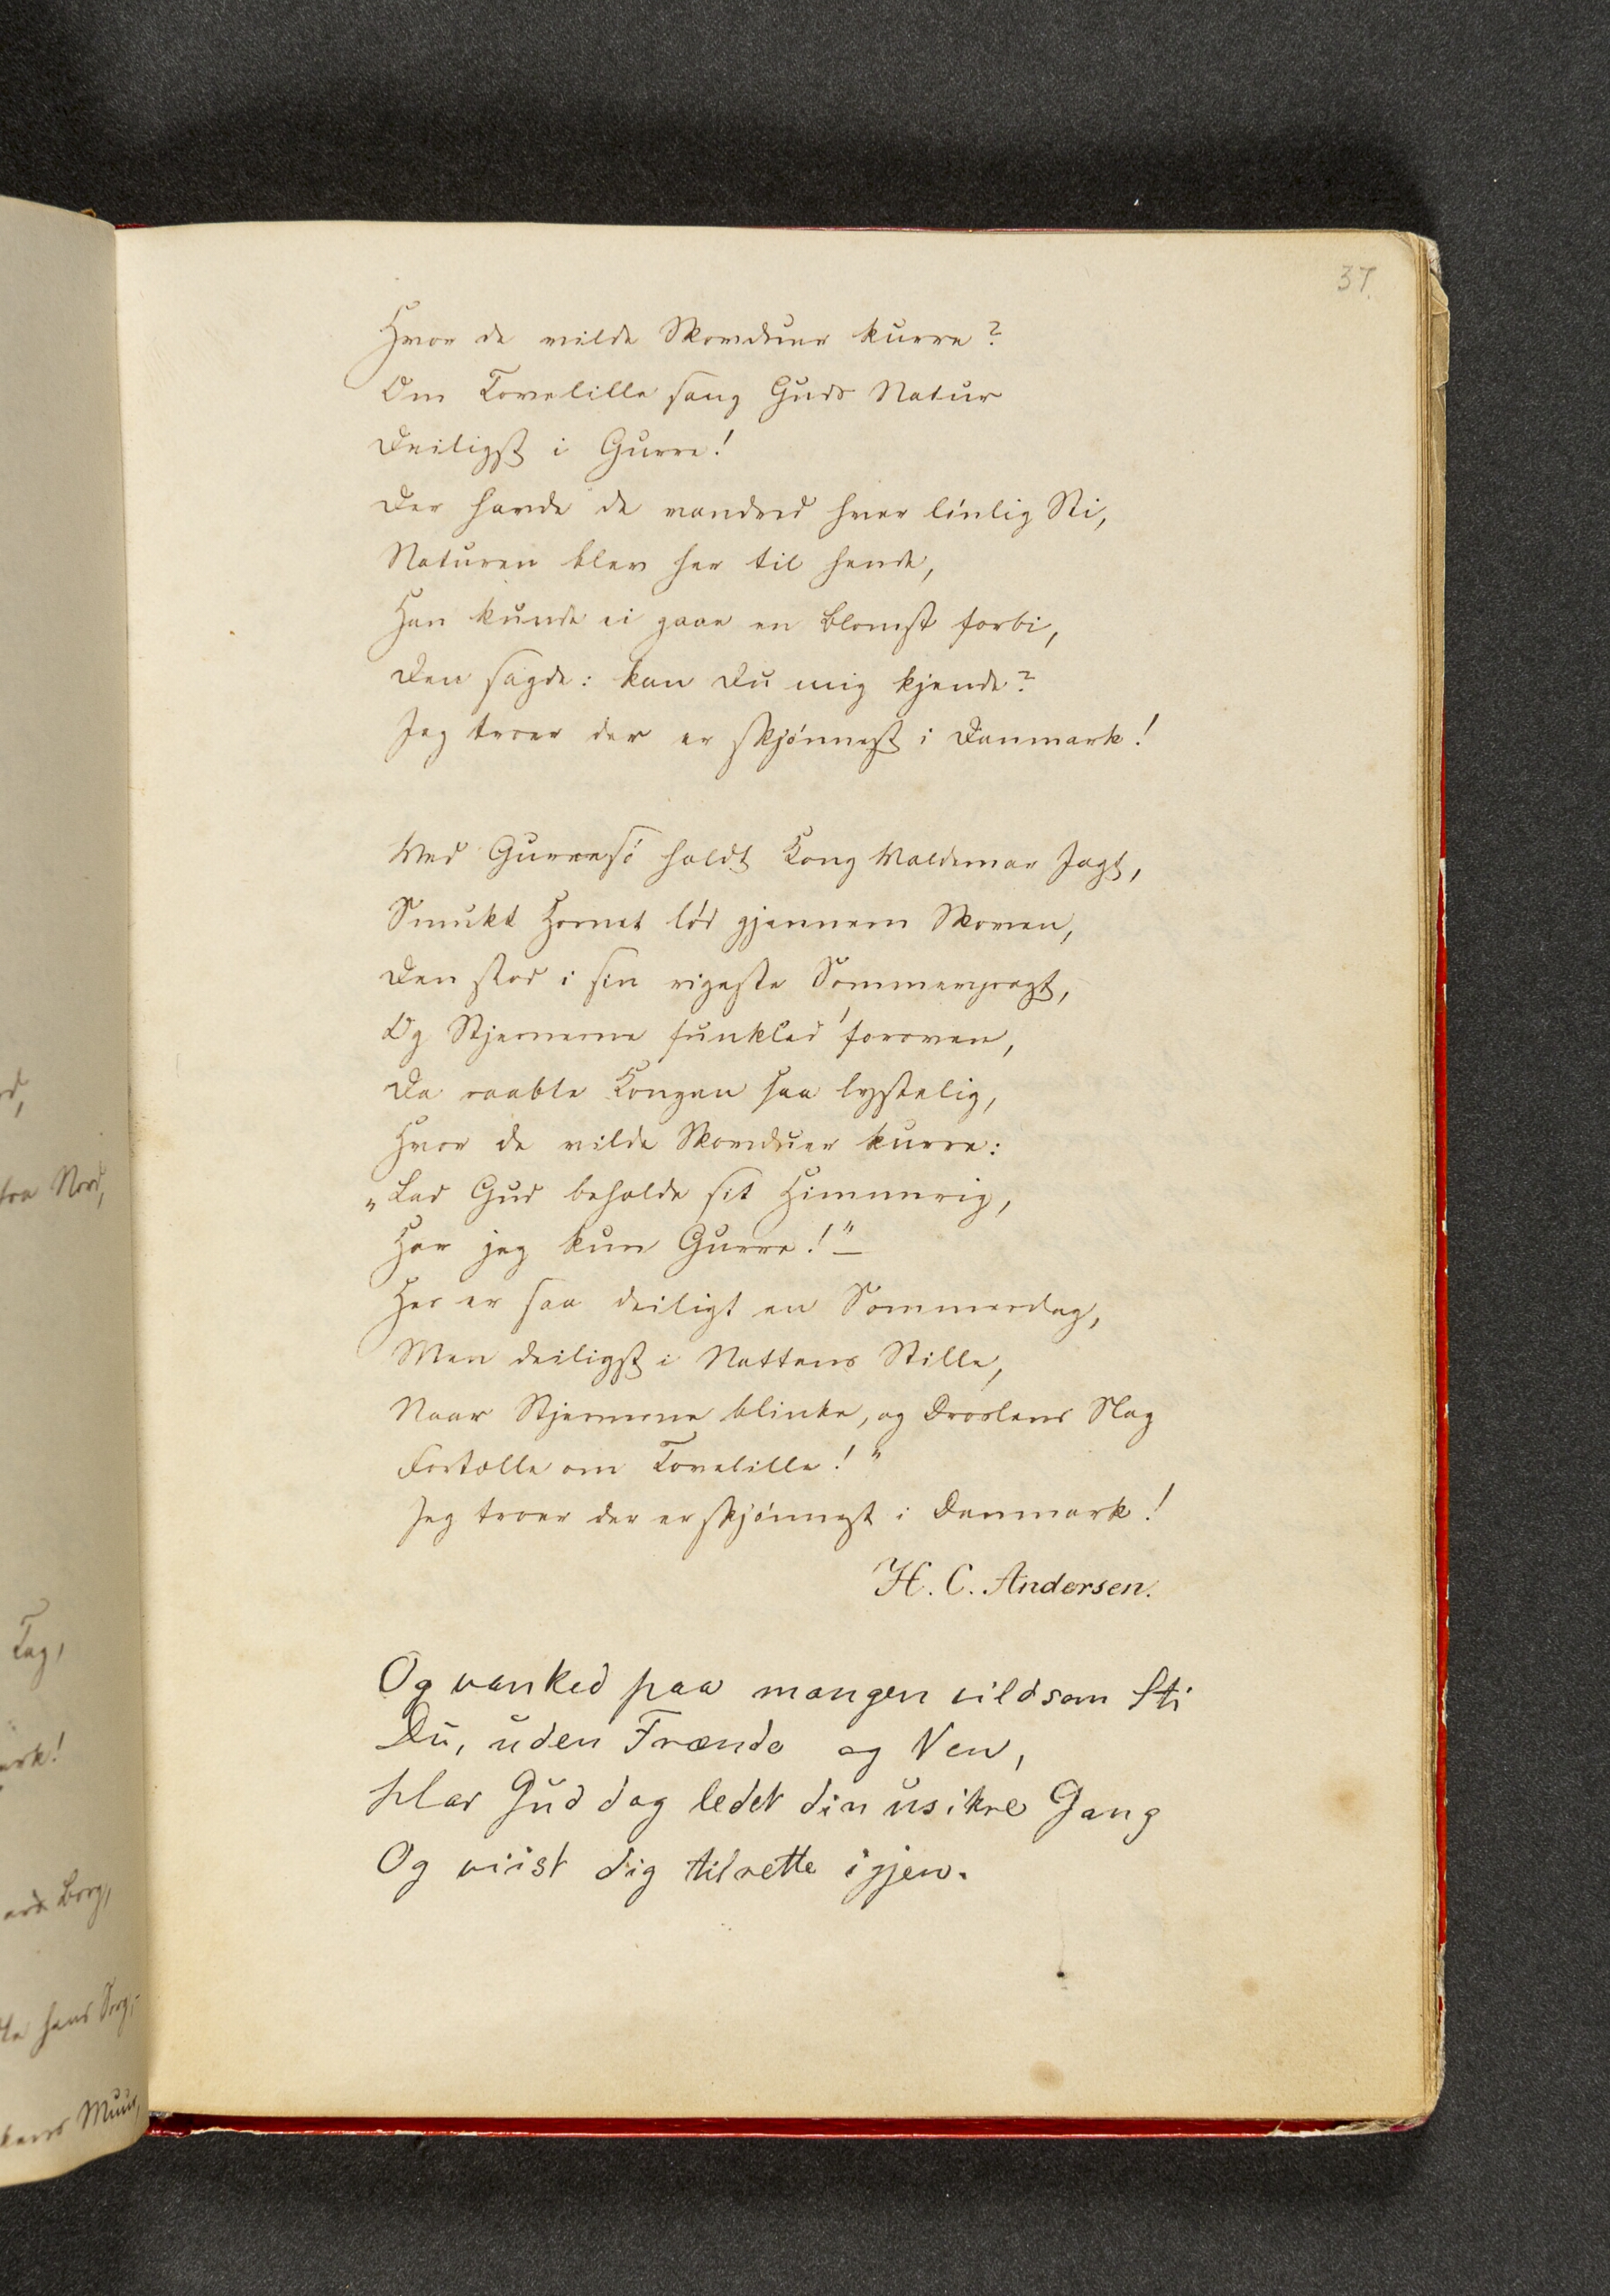 37.
Hvor de vilde Skovduer kurre?
Om Tovelille sang Guds Natur
Deiligst i Gurre!
Der havde de vandred hver lønlig Sti,
Naturen blev her til hende,
Han kunde ei gaae en Blomst forbi,
Den sagde: kan Du mig kjende?
Jeg troer der er skjønnest i Danmark!
Ved Gurresø holdt Kong Valdemar Jagt,
Smukt Hornet lød gjennem Skoven,
Den stod i sin rigeste Sommerpragt,
Og Stjernerne funkled' foroven,
Da raabte Kongen saa lystelig,
Hvor de vilde Skovduer kurre:
„Lad Gud beholde sit Himmerig,
Har jeg kun Gurre!"—
Her er saa deiligt en Sommerdag,
Men deiligst i Nattens Stille,
Naar Stjernerne blinke, og Droslens Slag
Fortælle om Tovelille!"
Jeg troer der er skjønnest i Danmark!
H. C. Andersen.
Og vanked paa mangen vildsom Sti
Du, uden Frænde og Ven,
Har Gud dog ledet din usikre Gang
Og viist dig tilrette igjen.
rd,
fra Nord,
Tag,
ark!
Borg,
hans Sorg,
Muur,